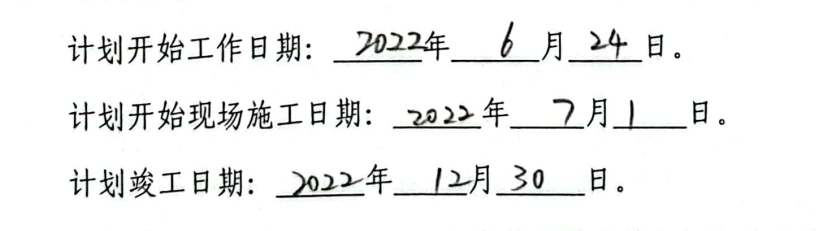 计划开始工作日期：2022年 6 月 24 日。
计划开始现场施工日期：2022 年 7 月 1 日。
计划竣工日期：2022年 12月 30 日。